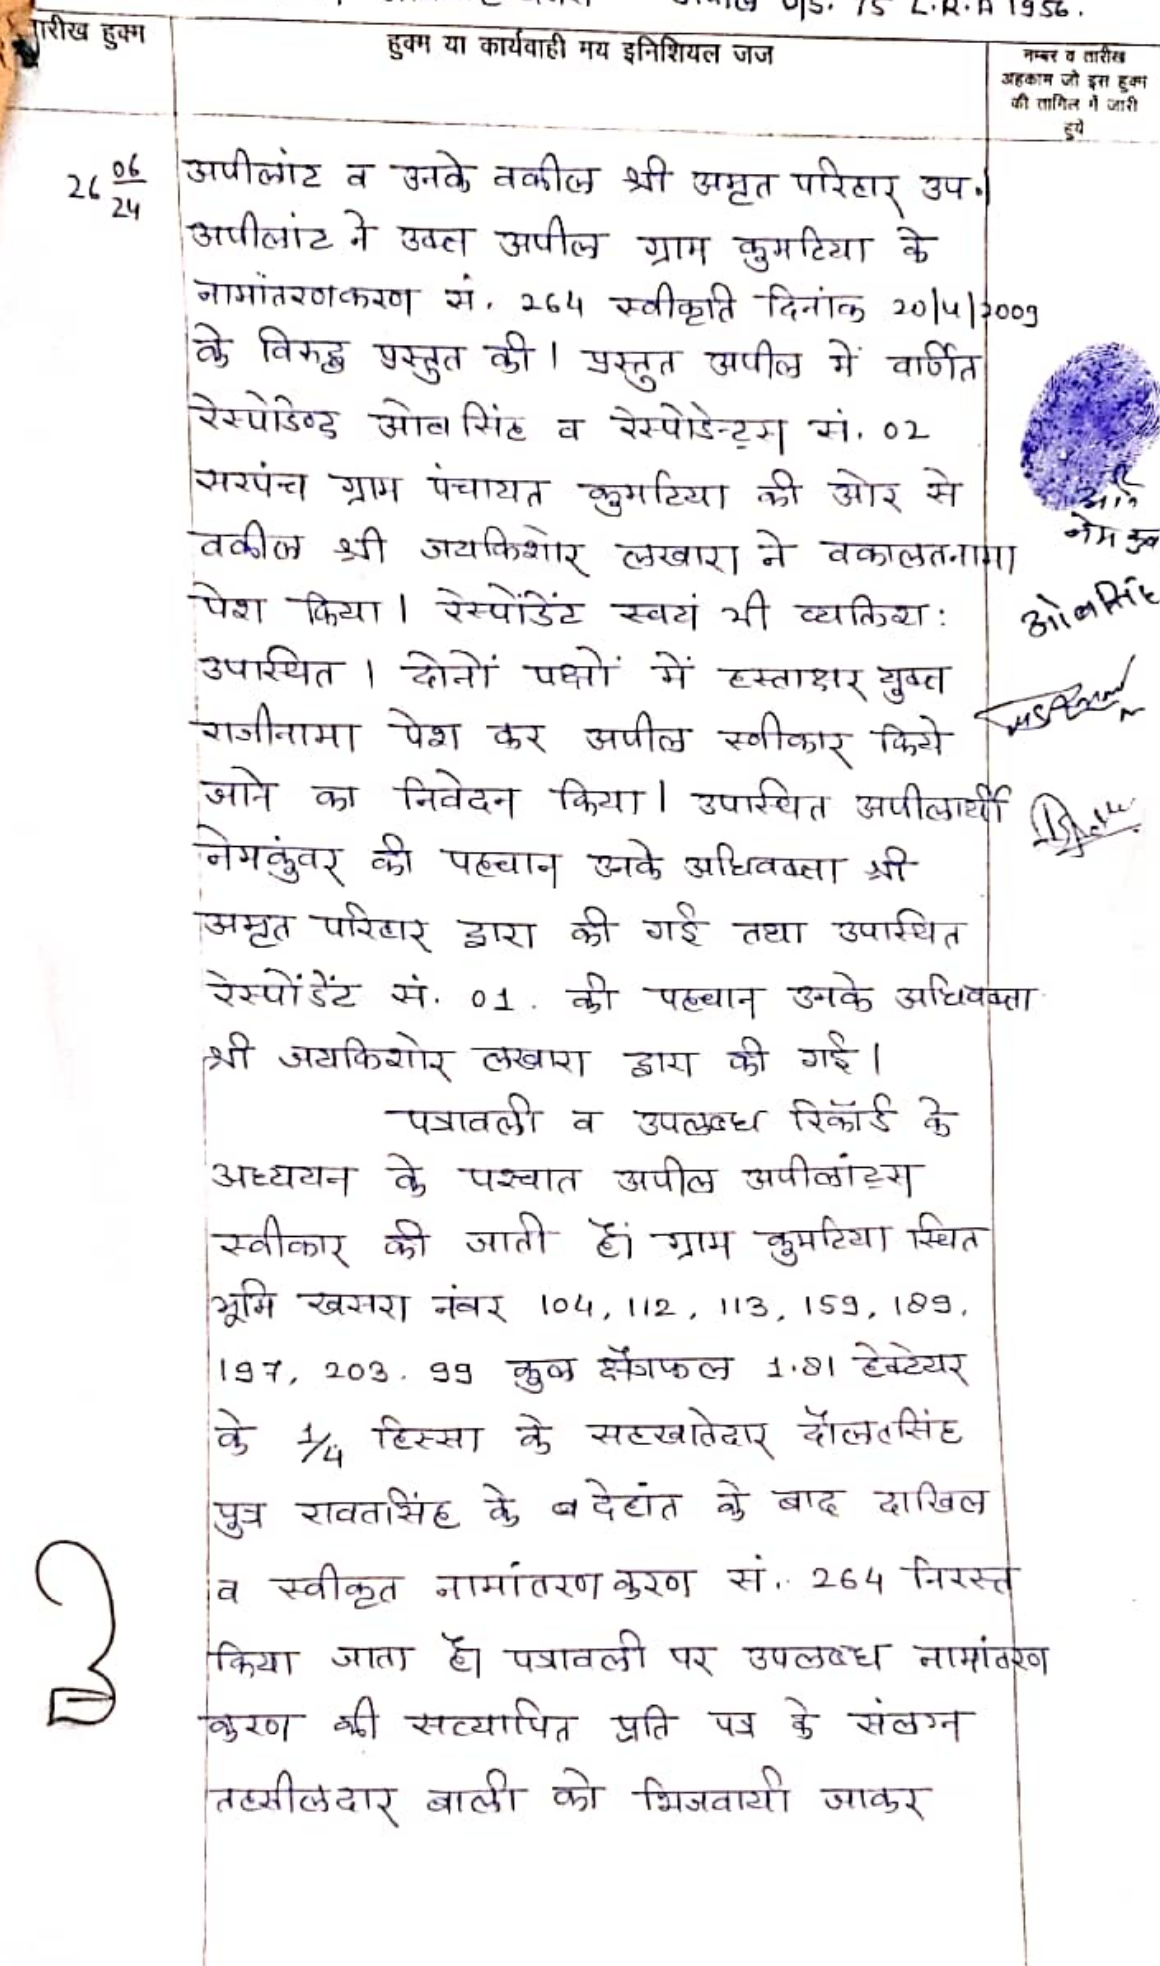 U/S. 75 L.R.A 1956.
तारीख हुक्म
हुक्म या कार्यवाही मय इनिशियल जज
नम्बर व तारीख
अहकाम जो इस हुक्म
की तामिल में जारी
हुये
26 06/24
अपीलांट व उनके वकील श्री अमृत परिहार उप.।
अपीलांट ने उक्त अपील ग्राम कुमटिया के
नामांतरणकरण सं. 264 स्वीकृति दिनांक 20/4/2009
के विरुद्ध प्रस्तुत की। प्रस्तुत अपील में वर्णित
रेस्पोडेण्ट ओबसिंह व रेस्पोडेन्ट्स सं. 02
सरपंच ग्राम पंचायत कुमटिया की ओर से
वकील श्री जयकिशोर लखारा ने वकालतनामा
पेश किया। रेस्पोंडेंट स्वयं भी व्यक्तिश:
उपास्थित। दोनों पक्षों में हस्ताक्षर युक्त
राजीनामा पेश कर अपील स्वीकार किये
जाने का निवेदन किया। उपास्थित अपीलार्थी
नेमकुंवर की पहचान उनके अधिवक्ता श्री
अमृत परिहार द्वारा की गई तथा उपास्थित
रेस्पोंडेंट सं. 01. की पहचान उनके अधिवक्ता
श्री जयकिशोर लखारा द्वारा की गई।
पत्रावली व उपलब्ध रिकॉर्ड के
अध्ययन के पश्चात अपील अपीलांट्स
स्वीकार की जाती है। ग्राम कुमटिया स्थित
भूमि खसरा नंबर 104, 112, 113, 159, 189,
197, 203. 99 कुल क्षेत्रफल 1.81 हेक्टेयर
के 1/4 हिस्सा के सहखातेदार दौलतसिंह
पुत्र रावतसिंह के देहांत के बाद दाखिल
व स्वीकृत नामांतरण करण सं. 264 निरस्त
किया जाता है। पत्रावली पर उपलब्ध नामांतरण
करण की सत्यापित प्रति पत्र के संलग्न
तहसीलदार बाली को भिजवायी जाकर
ओबसिंह